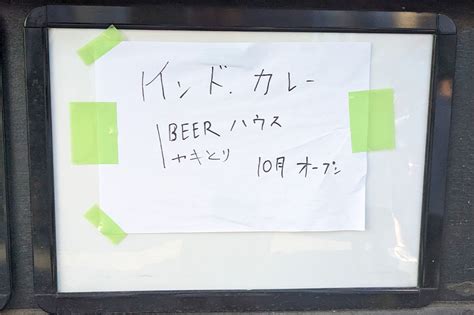 インド.カレー
BEER ハウス
ヤキとり 10月 オープン